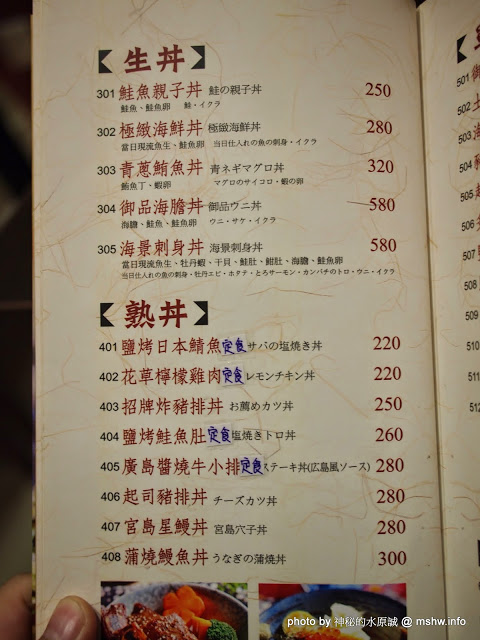 【生丼】
301 鮭魚親子丼 鮭の親子丼 250
鮭魚、鮭魚卵 鮭・イクラ
302 極緻海鮮丼 極緻海鮮丼 280
當日現流魚生、鮭魚卵 当日仕入れの魚の刺身・イクラ
303 青蔥鮪魚丼 青ネギマグロ丼 320
鮪魚丁、蝦卵 マグロのサイコロ・蝦の卵
304 御品海膽丼 御品ウニ丼 580
海膽、鮭魚、鮭魚卵 ウニ・サケ・イクラ
305 海景刺身丼 海景刺身丼 580
當日現流魚生、牡丹蝦、干貝、鮭肚、魽肚、海膽、鮭魚卵
当日仕入れの魚の刺身・牡丹エビ・ホタテ・とろサーモン・カンパチのトロ・ウニ・イクラ
【熟丼】
401 鹽烤日本鯖魚定食 サバの塩焼き丼 220
402 花草檸檬雞肉定食 レモンチキン丼 220
403 招牌炸豬排丼 お薦めカツ丼 250
404 鹽烤鮭魚肚定食 塩焼きトロ丼 260
405 廣島醬燒牛小排定食 ステーキ丼(広島風ソース) 280
406 起司豬排丼 チーズカツ丼 280
407 宮島星鰻丼 宮島穴子丼 280
408 蒲燒鰻魚丼 うなぎの蒲焼丼 300
501
502
503
504
505
506
507
508
509
510
511
photo by 神秘的水原誠 @ mshw.info